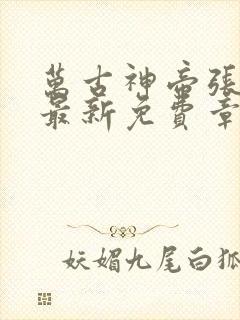 萬古神帝張
最新免費章
妖媚九尾白狐